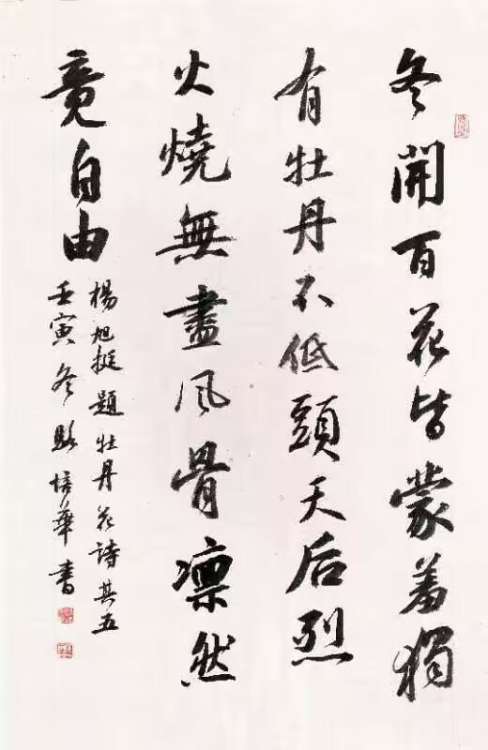 冬開百花皆蒙羞獨
有牡丹不低頭天后烈
火燒無盡風骨凛然
竟自由
楊旭挺題牡丹花詩其五
壬寅冬駱培華書